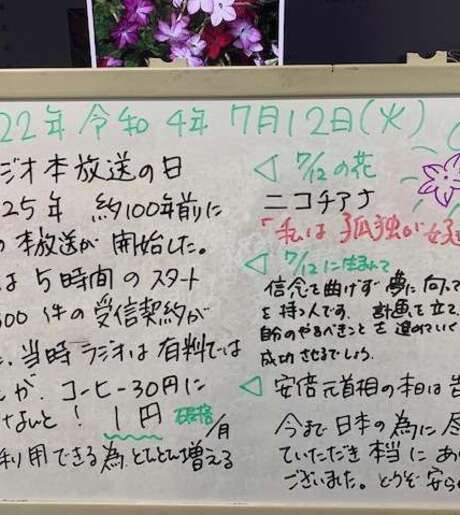 22年 令和4年 7月12日(火)
ジオ本放送の日
25年 約100年前に
の本放送が開始した。
は5時間のスタート
500件の受信契約が
、当時ラジオは有料では
が、コーヒー30円に
なんと! 1円 /月
利用できる為どんどん増える
◁ 7/12の花
ニコチアナ
「私は孤独が好
◁ 7/12に生まれて
信念を曲げず夢に向って
を持つ人です。計画を立て、
自分のやるべきことを進めていく
成功させるでしょう。
◁ 安倍元首相の本日は告
今まで日本の為に尽
ていただき本当にあ
ございました。どうぞ安ら